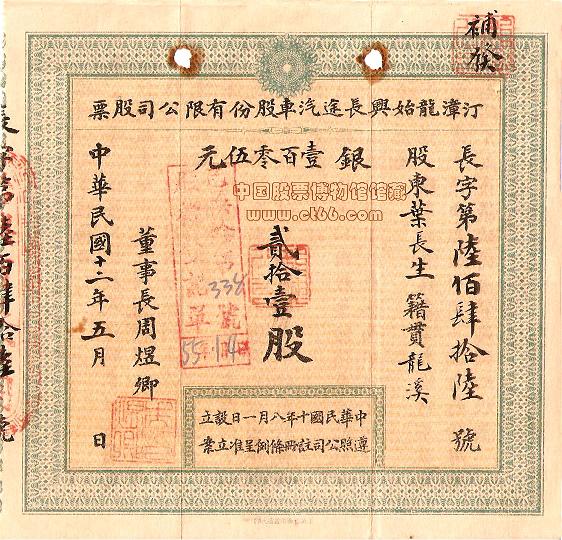 補發
汀漳龍始興長途汽車股份有限公司股票
長字第陸佰肆拾陸號
股東葉長生 籍貫龍溪
銀壹百零伍元
中国股票博物馆馆藏
www.ct66.com
貳拾壹股
338
55. 1. 14
董事長周煜卿
中華民國十二年五月 日
中華民國十年八月一日設立
遵照公司註冊條例呈准立案
長字第陸佰肆拾陸號